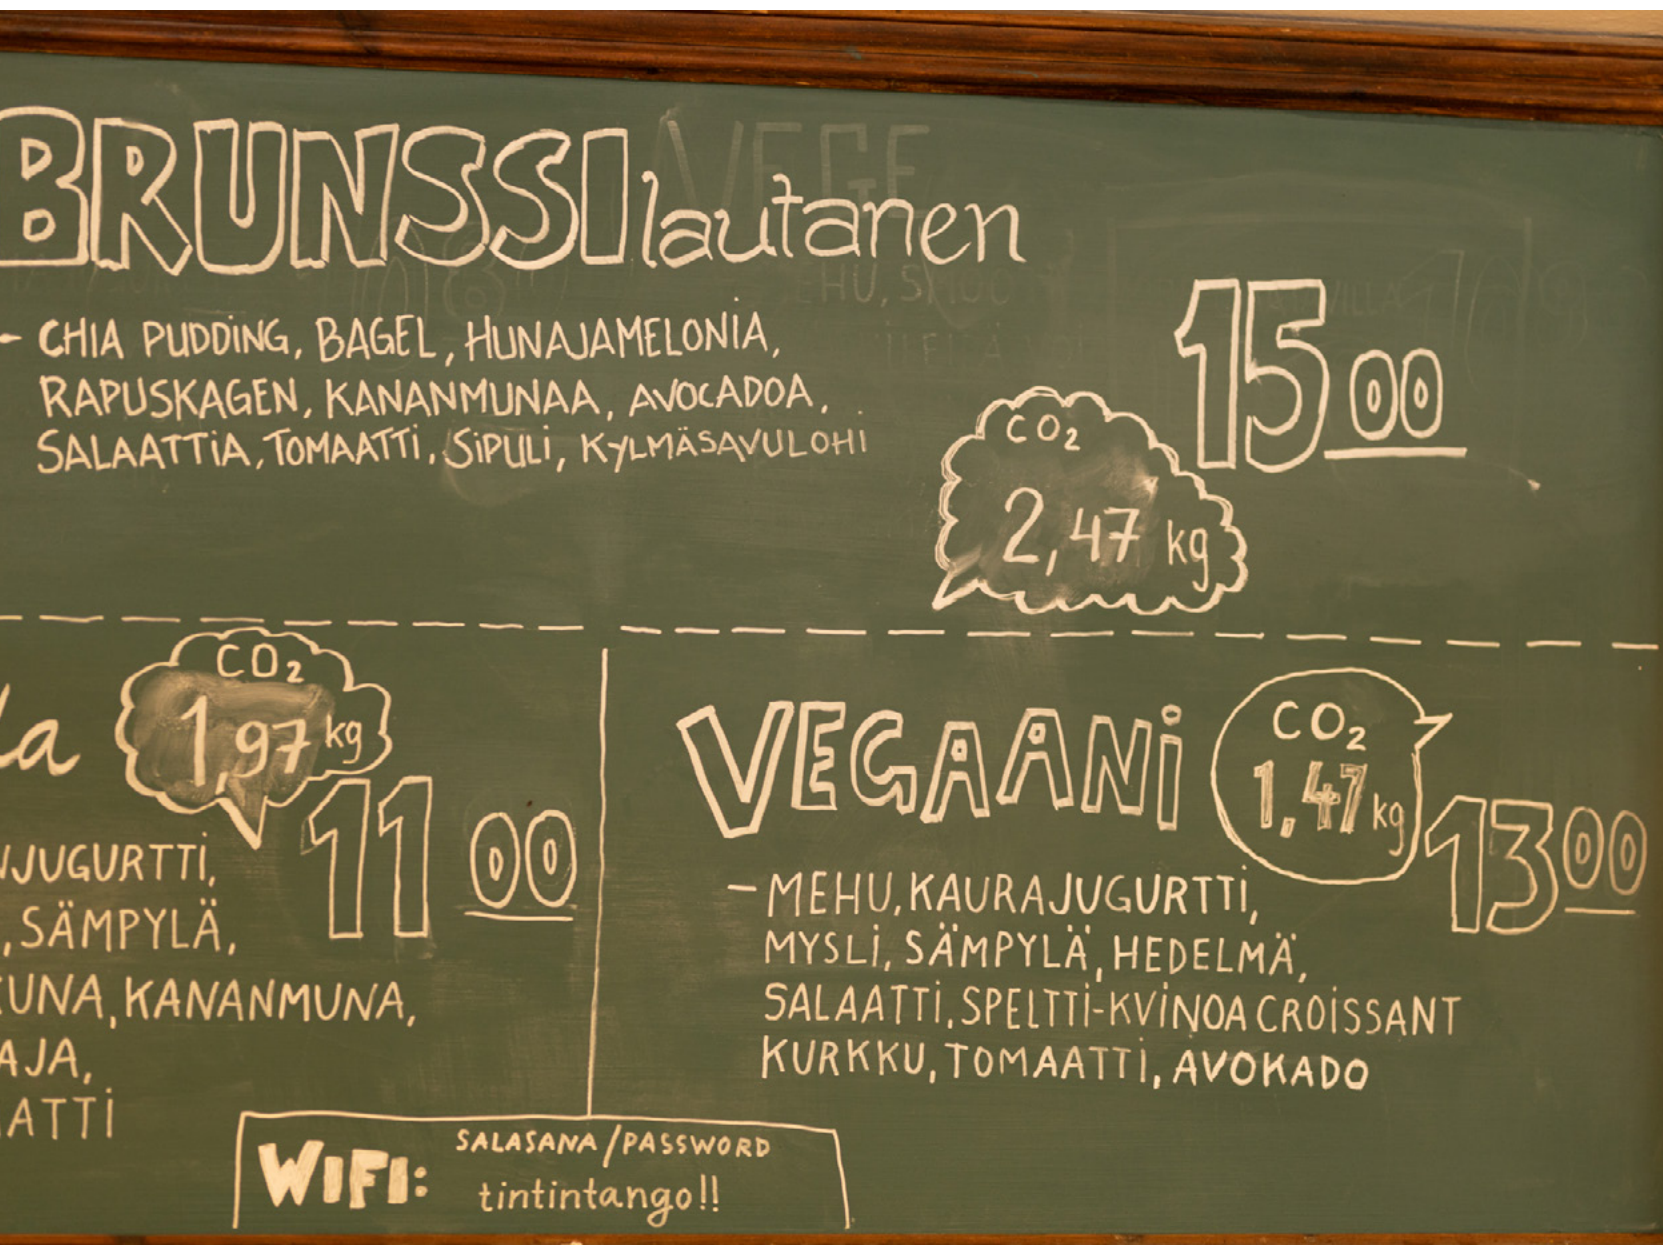 BRUNSSI lautanen
- CHIA PUDDING, BAGEL, HUNAJAMELONIA,
RAPUSKAGEN, KANANMUNAA, AVOCADOA,
SALAATTIA, TOMAATTI, SIPULI, KYLMÄSAVULOHI
15 00
CO2
2,47 kg
la
CO2
1,97 kg
11 00
JUGURTTI,
, SÄMPYLÄ,
UNA, KANANMUNA,
AJA,
ATTI
VEGAANI
CO2
1,47 kg
13 00
- MEHU, KAURAJUGURTTI,
MYSLI, SÄMPYLÄ, HEDELMÄ,
SALAATTI, SPELTTI-KVINOA CROISSANT
KURKKU, TOMAATTI, AVOKADO
WIFI: SALASANA/PASSWORD
tintintango!!